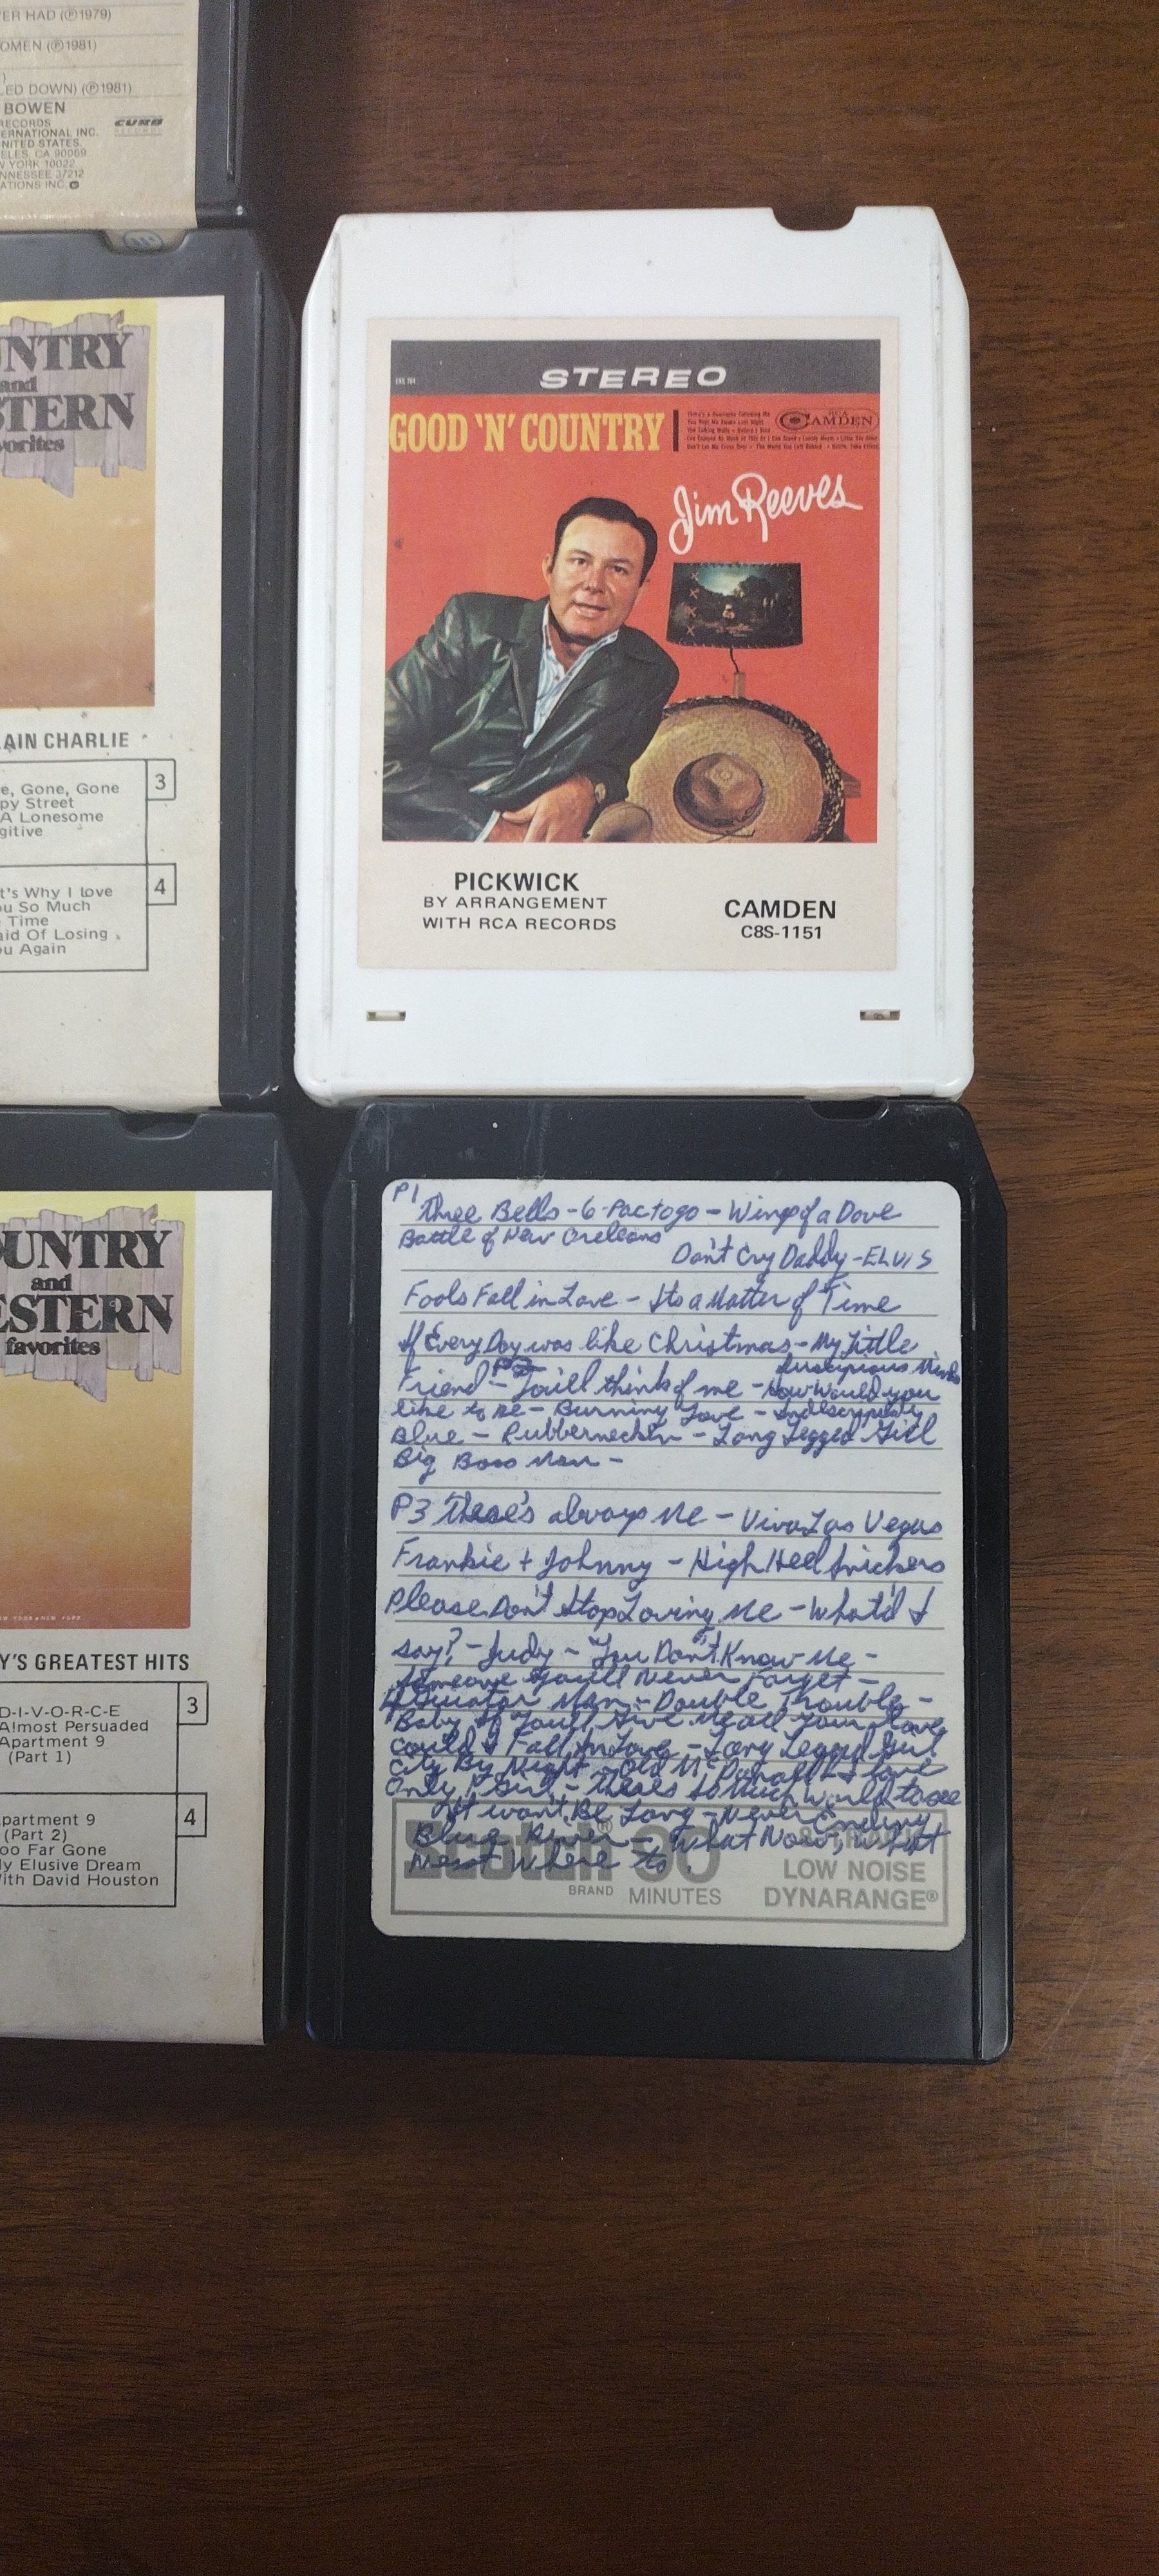 ER HAD (℗1979)
OMEN (℗1981)
)
LED DOWN) (℗1981)
BOWEN
RECORDS
ERNATIONAL INC.
UNITED STATES.
ELES, CA 90069
W YORK 10022
NNESSEE 37212
ATIONS INC.
CURB
RECORDS
UNTRY
and
STERN
vorites
AIN CHARLIE
3
e, Gone, Gone
py Street
A Lonesome
gitive
4
t's Why I love
ou So Much
Time
aid Of Losing
ou Again
STEREO
GOOD 'N' COUNTRY
RCA
CAMDEN
Jim Reeves
PICKWICK
BY ARRANGEMENT
WITH RCA RECORDS
CAMDEN
C8S-1151
OUNTRY
and
ESTERN
favorites
Y'S GREATEST HITS
3
D-I-V-O-R-C-E
Almost Persuaded
Apartment 9
(Part 1)
4
partment 9
(Part 2)
oo Far Gone
y Elusive Dream
ith David Houston
P1 Three Bells - 6-Pac to go - Wings of a Dove
Battle of New Orleans
Don't Cry Daddy - ELVIS
Fools Fall in Love - Its a Matter of Time
If Every Day was like Christmas - My Little
Suspicious Minds
Friend - P2 You'll think of me - How Would you
like to Be - Burning Love - Indescribably
Blue - Rubberneckin - Long Legged Girl
Big Boss Man -
P3 There's always Me - Viva Las Vegas
Frankie + Johnny - High Heel Snickers
Please Don't Stop Loving Me - What'd I
say? - Judy - You Don't Know Me -
Someone You'll Never Forget -
Man - Double Trouble -
Baby If You'll Give Me all Your Love
Could I Fall In Love - Long Legged Girl
City By Night - Old McDonald - I love
Only 1 Girl - theres So Much World to see
It won't Be Long - Never Ending
Blue River - What Now, What
Next Where to.
Scotch® 90
BRAND MINUTES
LOW NOISE
DYNARANGE®